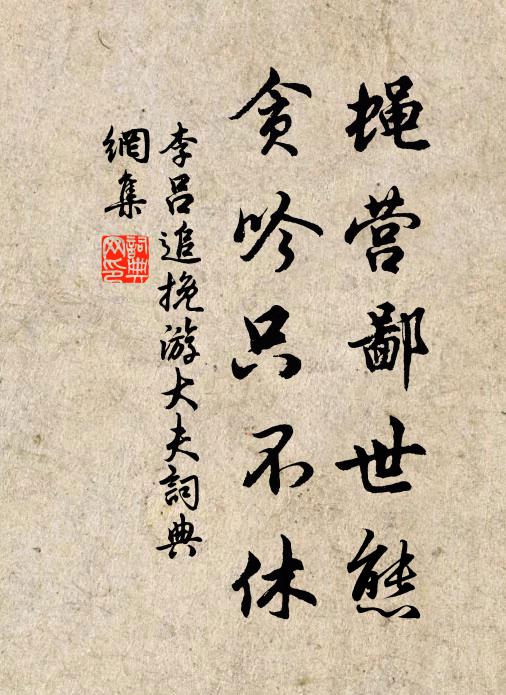 蝇营鄙世態
贪吟只不休
李呂追挽游大夫詞典
網集
詞典
网印